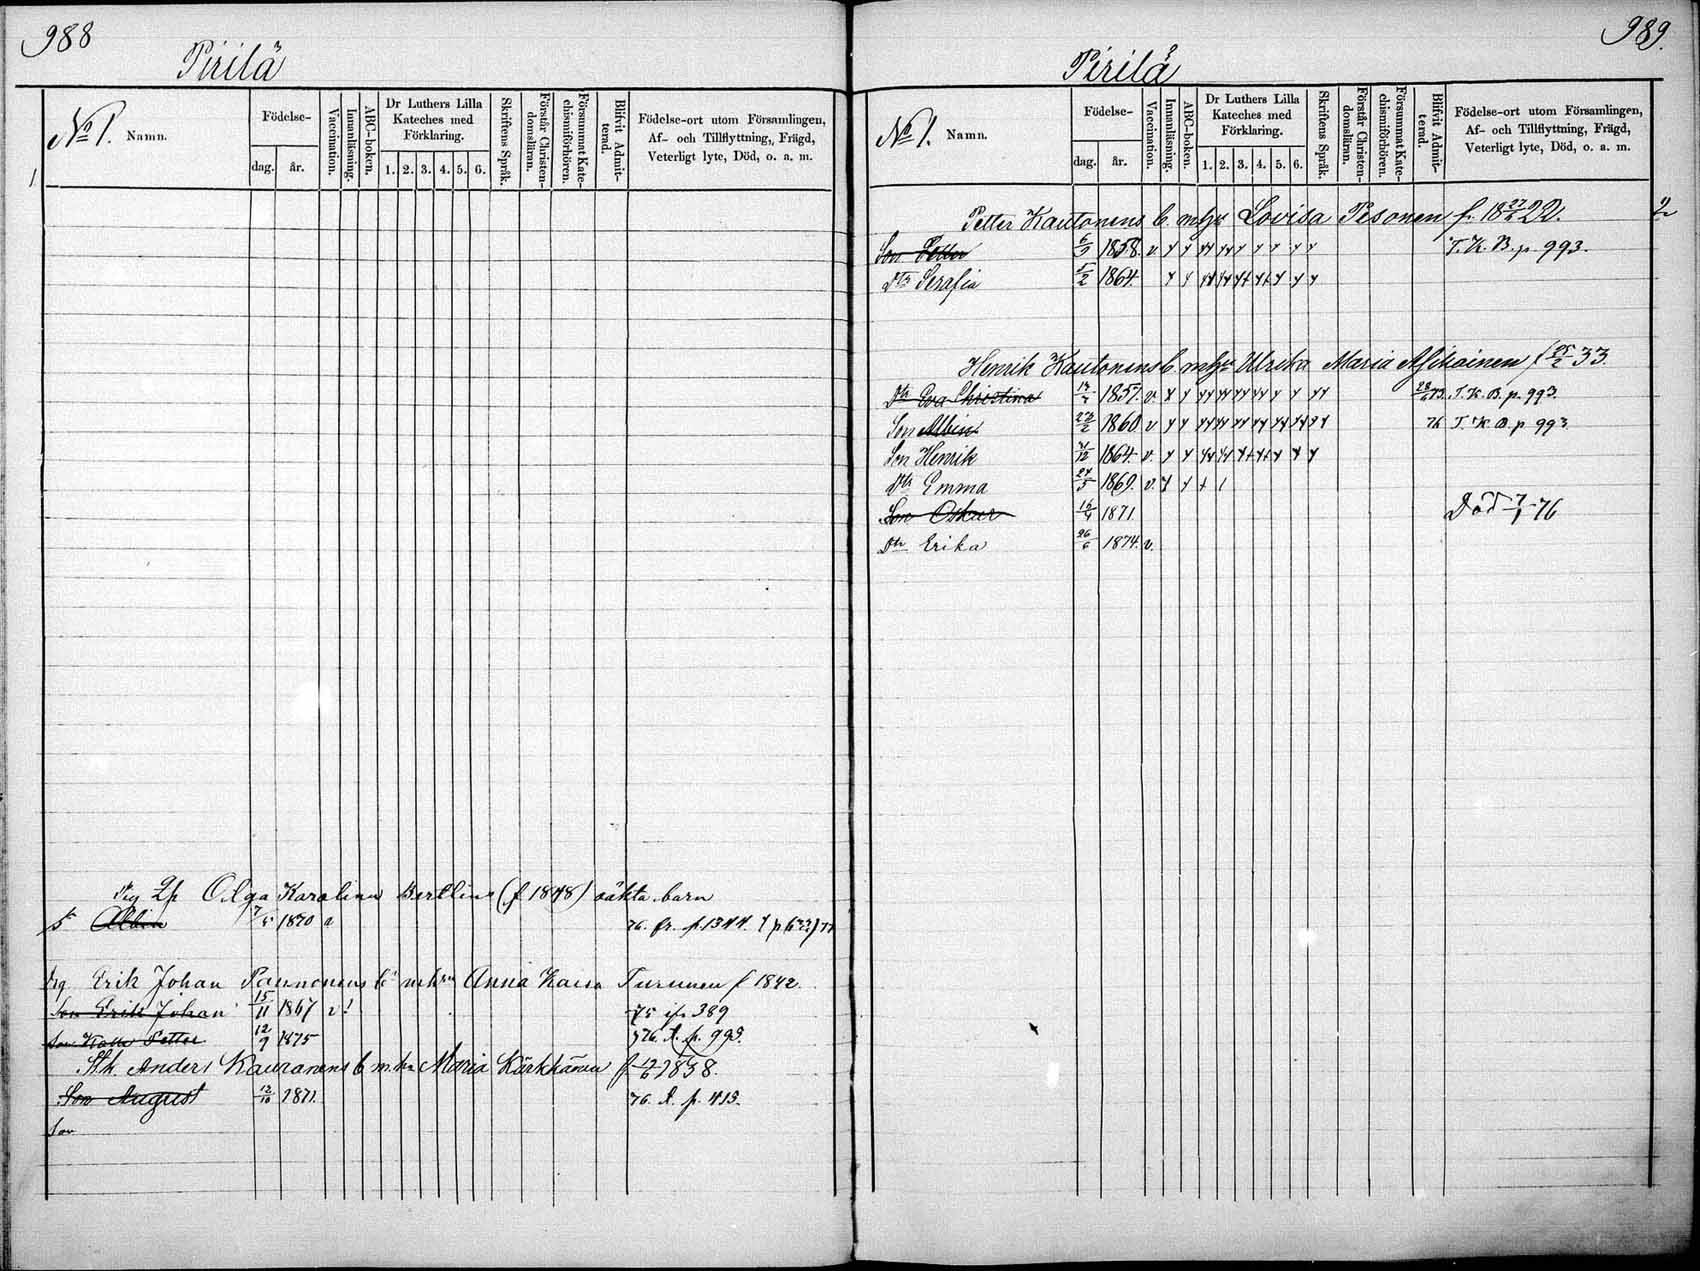 988
Pirilä
No 1. Namn.
Födelse-
dag. år.
Vaccination.
Innanläsning.
ABC-boken.
Dr Luthers Lilla Kateches med Förklaring.
1. 2. 3. 4. 5. 6.
Skriftens Språk.
Förstår Christendomsläran.
Försummat Katechismiförhören.
Blifvit Admitterad.
Födelse-ort utom Församlingen,
Af- och Tillflyttning, Frägd,
Veterligt lyte, Död, o. a. m.
1
Olga Karolina Bertlins (f 1848) oäkta barn
Albin 7/5 1870 76. fr. p. 1344.
Erik Johan Paunonens bn m hru Anna Kaisa Turunen f 1842.
Son Erik Johan 15/11 1867 v! 75 p 389
Son Petter 12/9 1875 76. t. p. 993.
Anders Kauranens b m. hu Maria Kärkkänen f 1838.
Son August 12/10 1871. 76. t. p. 415.
Son
989.
Pirilä
No 1. Namn.
Födelse-
dag. år.
Vaccination.
Innanläsning.
ABC-boken.
Dr Luthers Lilla Kateches med Förklaring.
1. 2. 3. 4. 5. 6.
Skriftens Språk.
Förstår Christendomsläran.
Försummat Katechismiförhören.
Blifvit Admitterad.
Födelse-ort utom Församlingen,
Af- och Tillflyttning, Frägd,
Veterligt lyte, Död, o. a. m.
Petter Kautonens b. m hu Lovisa Pesonen f. 1822. 2
Son Petter 6/9 1858. v. T. K. B. p. 993.
Dtr Serafia 5/2 1864.
Henrik Kautonens b. m hu Ulrika Maria Asikainen f 25/2 33.
Dtr Eva Christina 1857. v. T. K. B. p. 993.
Son Albin 1860 v 76 T. K. B. p 993
Son Henrik 1864 v.
Dtr Emma 24/5 1869. v.
Son Oskar 16/4 1871 Död 7/1 76
Dtr Erika 26/6 1874. v.